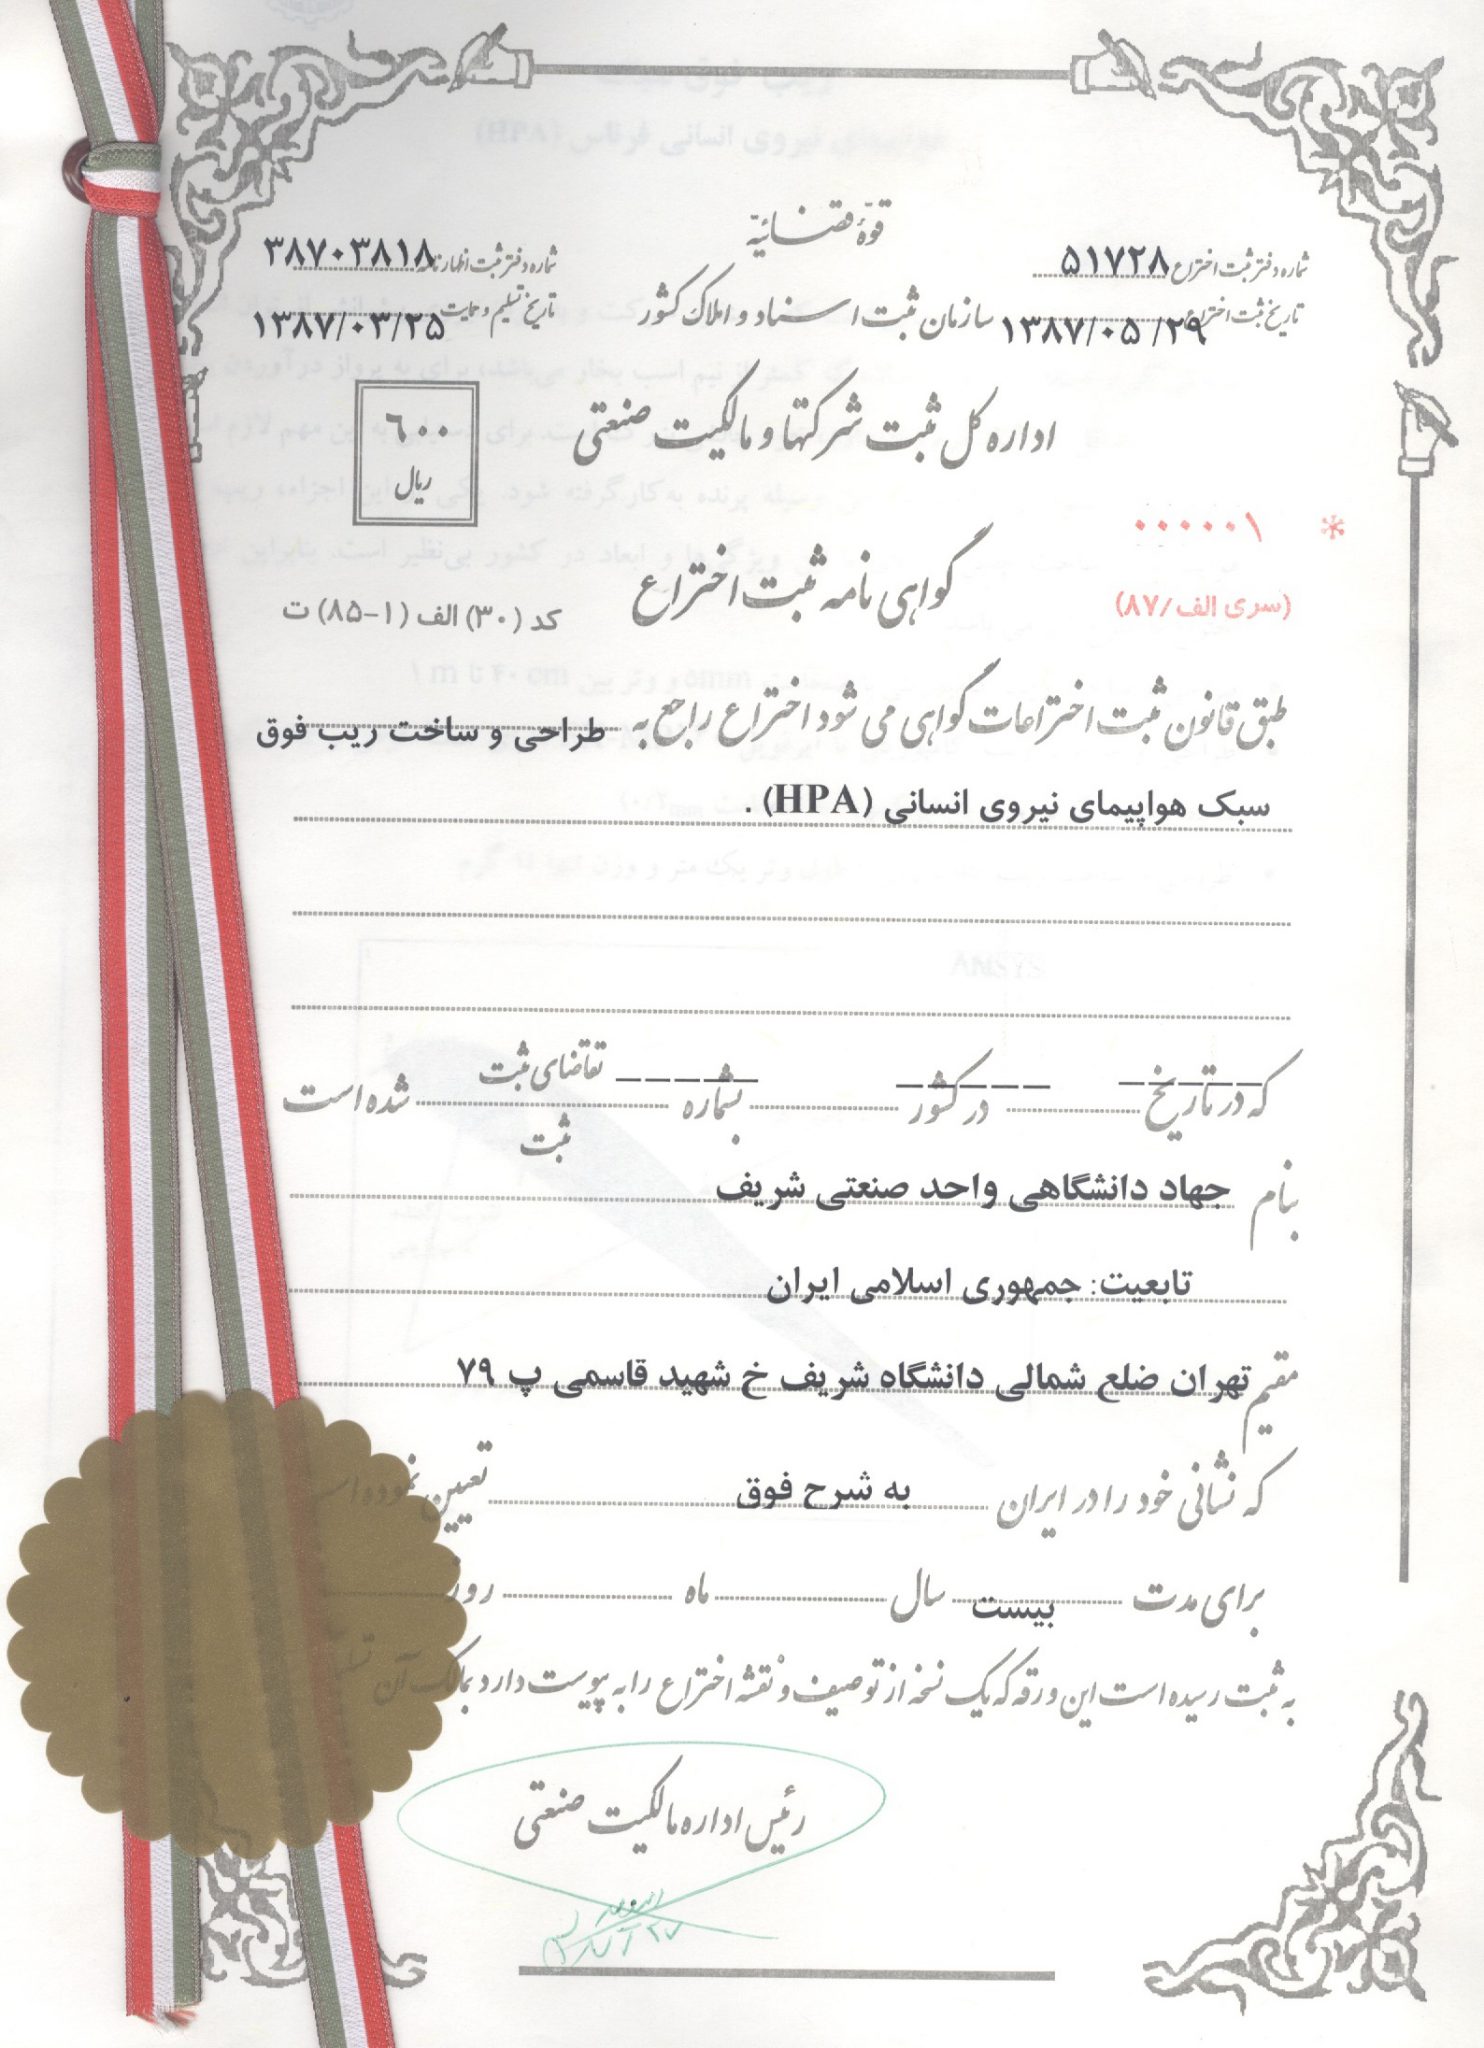 قوّهٔ قضائیّه
شماره دفتر ثبت اختراع ۵۱۷۲۸
شماره دفتر ثبت اظهارنامه ۳۸۷۰۳۸۱۸
سازمان ثبت اسناد و املاک کشور
تاریخ ثبت اختراع ۱۳۸۷/۰۵/۲۹
تاریخ تسلیم و حمایت ۱۳۸۷/۰۳/۲۵
اداره کل ثبت شرکتها و مالکیت صنعتی
۶۰۰
ریال
* ۰۰۰۰۰۱
(سری الف/۸۷)
گواهی نامه ثبت اختراع
کد (۳۰) الف (۱-۸۵) ت
طبق قانون ثبت اختراعات گواهی می شود اختراع راجع به طراحی و ساخت ریب فوق
سبک هواپیمای نیروی انسانی (HPA) .
که در تاریخ ------ در کشور ------ بشماره ------ تقاضای ثبت
ثبت
شده است
بنام جهاد دانشگاهی واحد صنعتی شریف
تابعیت: جمهوری اسلامی ایران
مقیم تهران ضلع شمالی دانشگاه شریف خ شهید قاسمی پ ۷۹
که نشانی خود را در ایران به شرح فوق تعیین نموده
برای مدت بیست سال ماه روز
به ثبت رسیده است این ورقه که یک نسخه از توصیف و نقشه اختراع را به پیوست دارد بمالک آن
رئیس اداره مالکیت صنعتی